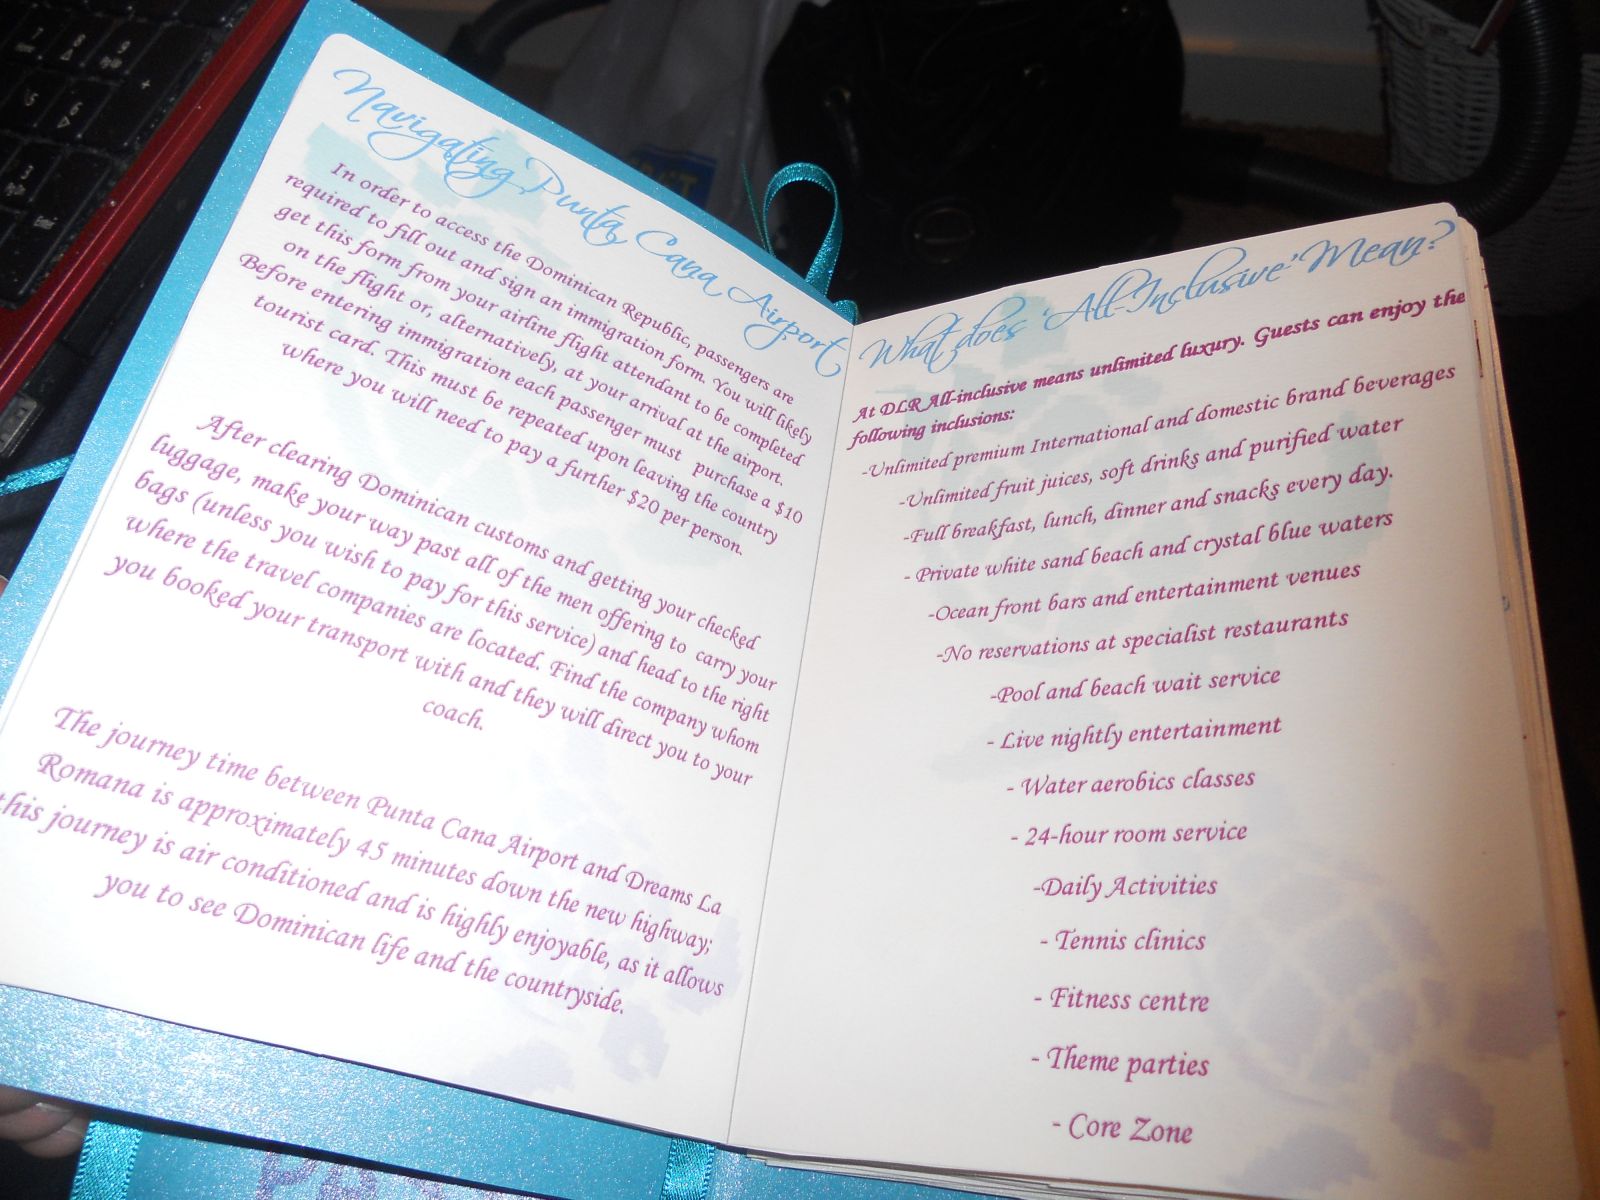 Navigating Punta Cana Airport
In order to access the Dominican Republic, passengers are
required to fill out and sign an immigration form. You will likely
get this form from your airline flight attendant to be completed
on the flight or, alternatively, at your arrival at the airport.
Before entering immigration each passenger must purchase a $10
tourist card. This must be repeated upon leaving the country
where you will need to pay a further $20 per person.
After clearing Dominican customs and getting your checked
luggage, make your way past all of the men offering to carry your
bags (unless you wish to pay for this service) and head to the right
where the travel companies are located. Find the company whom
you booked your transport with and they will direct you to your
coach.
The journey time between Punta Cana Airport and Dreams La
Romana is approximately 45 minutes down the new highway;
this journey is air conditioned and is highly enjoyable, as it allows
you to see Dominican life and the countryside.
What does 'All-Inclusive' Mean?
At DLR All-inclusive means unlimited luxury. Guests can enjoy the
following inclusions:
-Unlimited premium International and domestic brand beverages
-Unlimited fruit juices, soft drinks and purified water
-Full breakfast, lunch, dinner and snacks every day.
- Private white sand beach and crystal blue waters
-Ocean front bars and entertainment venues
-No reservations at specialist restaurants
-Pool and beach wait service
- Live nightly entertainment
- Water aerobics classes
- 24-hour room service
-Daily Activities
- Tennis clinics
- Fitness centre
- Theme parties
- Core Zone